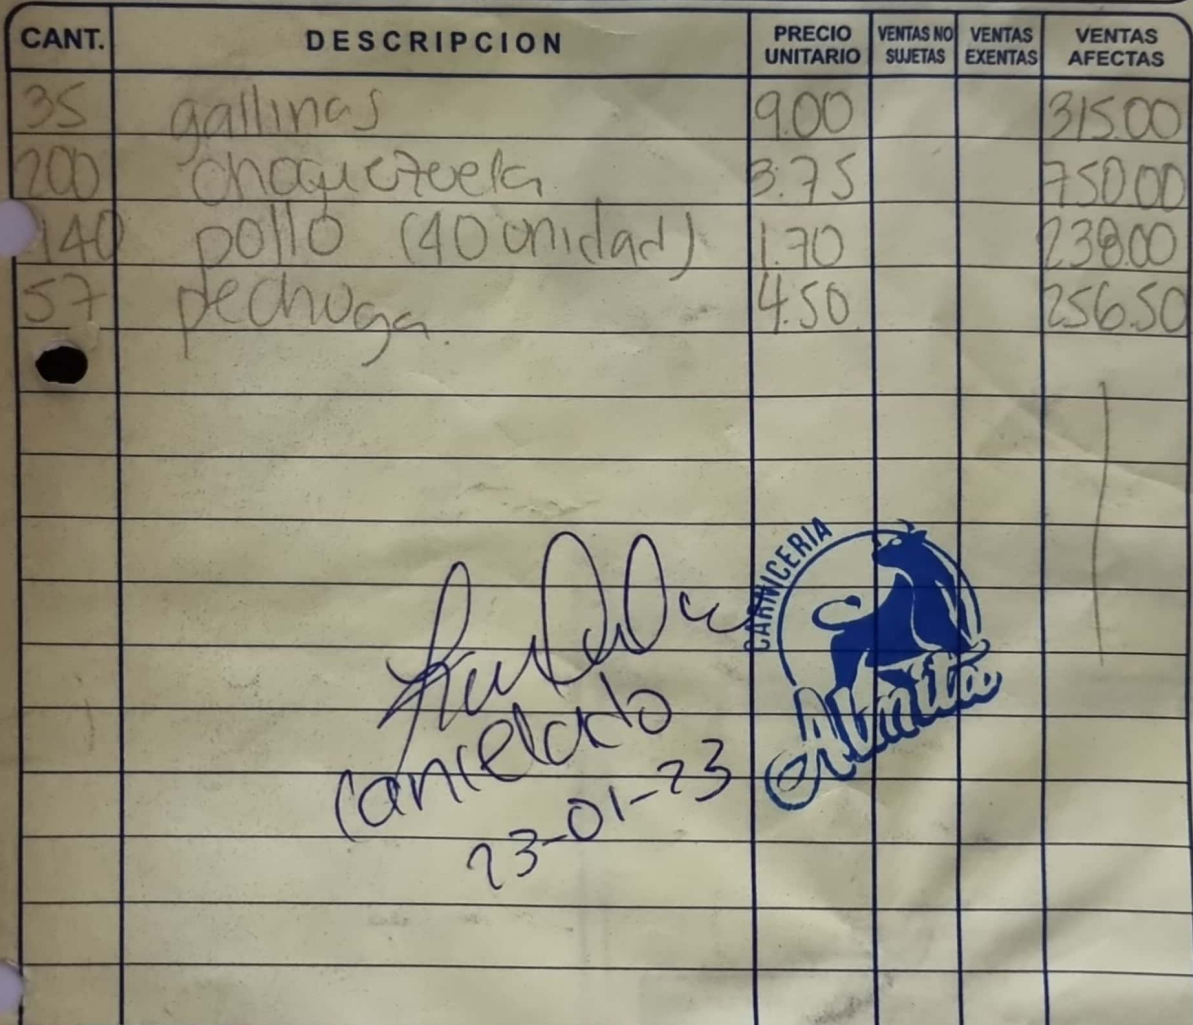 CANT. DESCRIPCION PRECIO UNITARIO VENTAS NO SUJETAS VENTAS EXENTAS VENTAS AFECTAS
35 gallinas 9.00 315.00
200 choquezuela 3.75 750.00
140 pollo (40 unidad) 1.70 238.00
57 pechuga. 4.50 256.50
CARNICERIA
Almita
cancelado
23-01-23